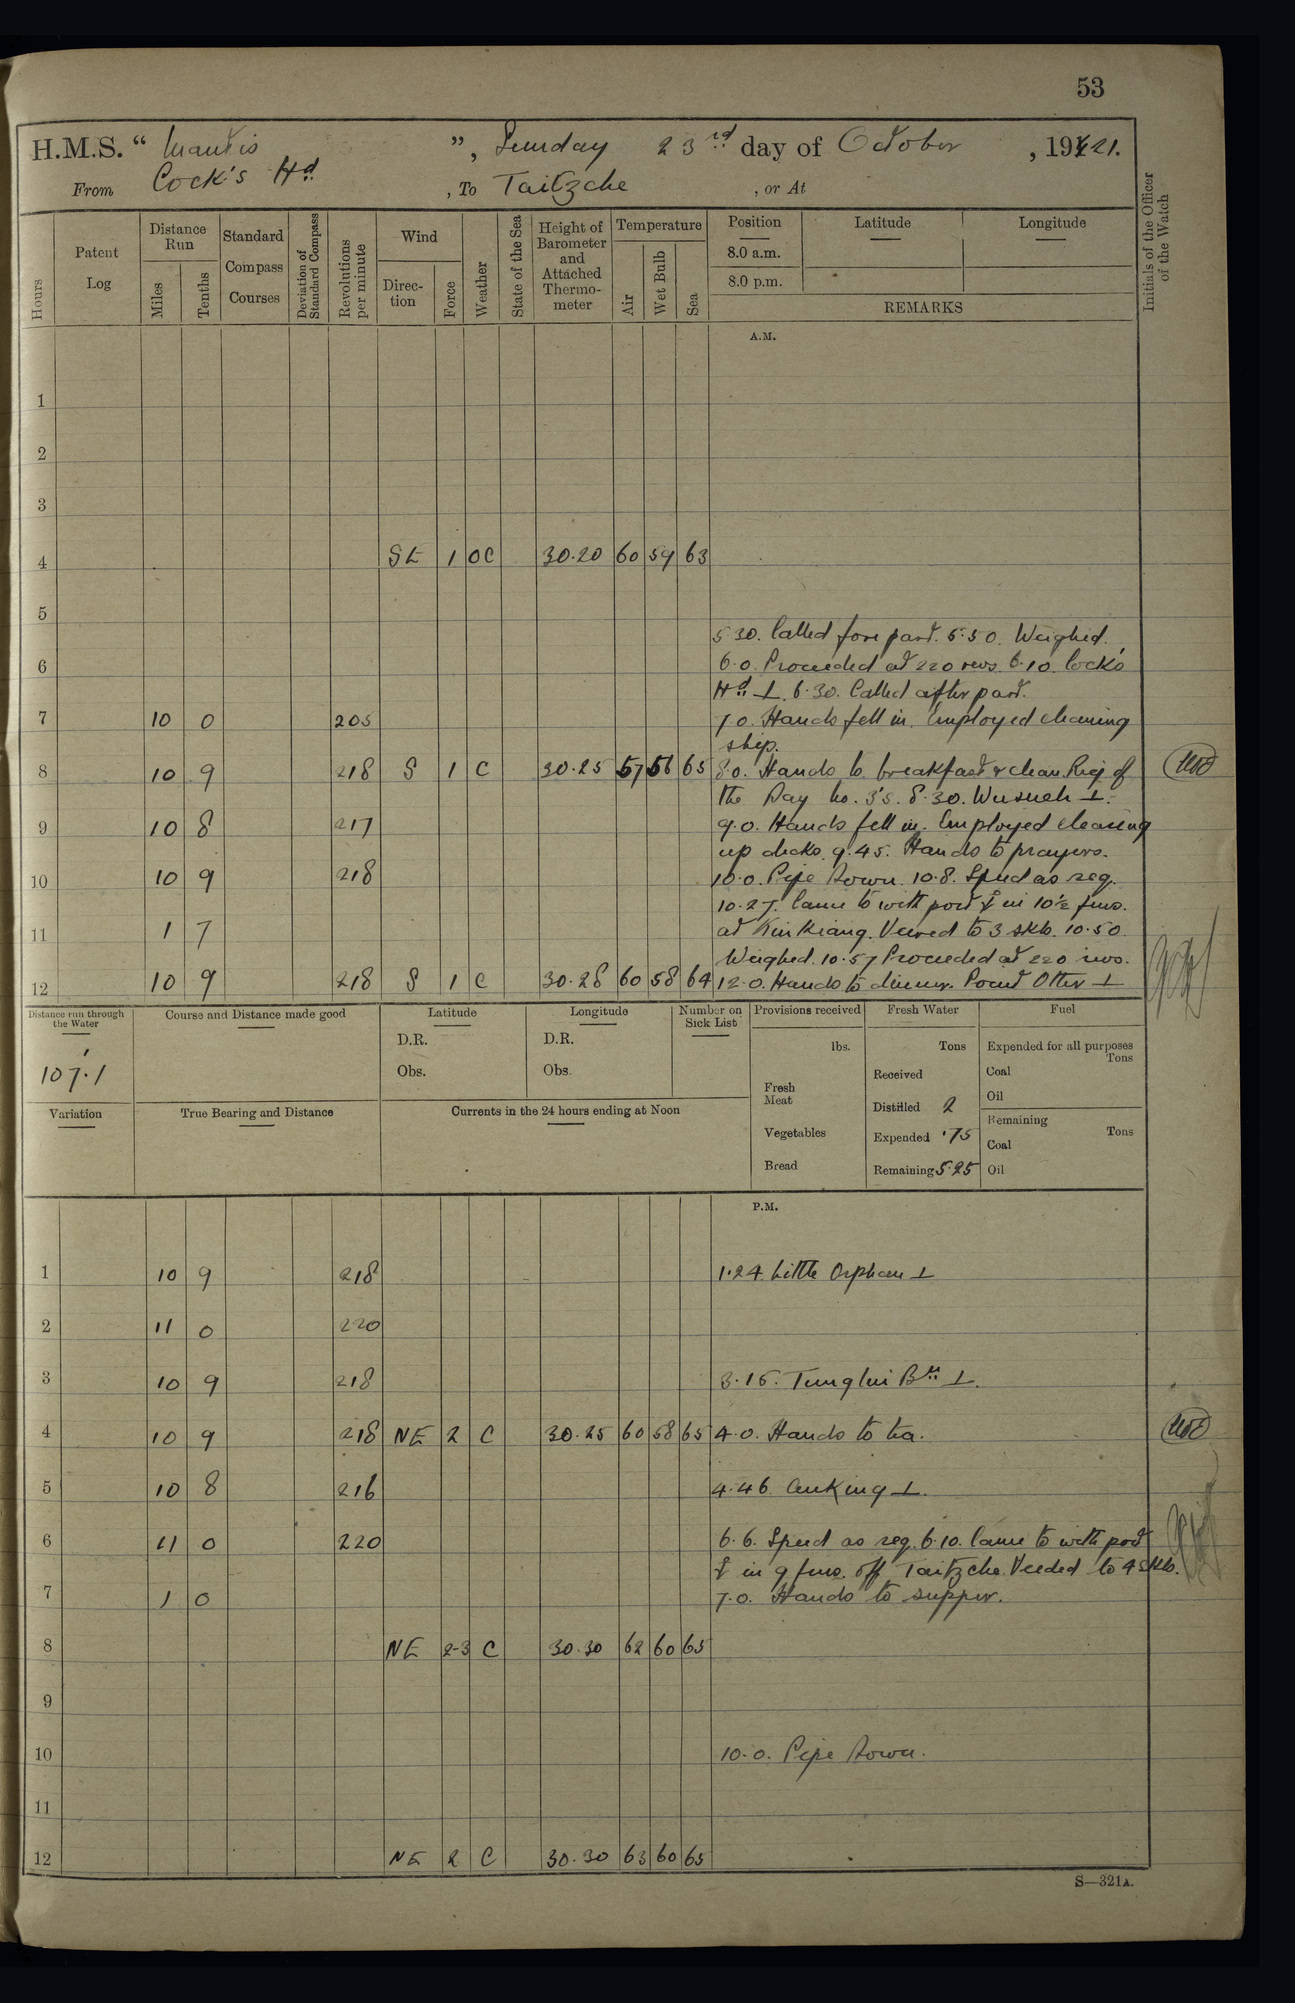 53
H.M.S. “ Mantis ”, Sunday 23rd day of October, 1921.
From Cock's Hd. , To Taitzche , or At
Hours
Patent Log
Distance Run
Miles
Tenths
Standard Compass Courses
Deviation of Standard Compass
Revolutions per minute
Wind
Direction
Force
Weather
State of the Sea
Height of Barometer and Attached Thermometer
Temperature
Air
Wet Bulb
Sea
Position
8.0 a.m.
8.0 p.m.
Latitude
Longitude
REMARKS
Initials of the Officer of the Watch
A.M.
1
2
3
4 SE 1 OC 30.20 60 59 63
5
5.30. Called fore part. 5.50. Weighed.
6 6.0. Proceeded at 220 revs. 6.10. Cock's
Hd. ⊥. 6.30. Called after part.
7 10 0 205 7.0. Hands fell in. Employed cleaning
ship.
8 10 9 218 S 1 C 30.25 57 56 65 8.0. Hands to breakfast & clean. Rig of
the Day No. 3's. 8.30. Wusueh ⊥.
9 10 8 217 9.0. Hands fell in. Employed clearing
up decks. 9.45. Hands to prayers.
10 10 9 218 10.0. Pipe down. 10.8. Speed as req.
10.27. Came to with port ⚓ in 10½ fms.
11 1 7 at Kinkiang. Veered to 3 skls. 10.50
Weighed. 10.57 Proceeded at 220 revs.
12 10 9 218 S 1 C 30.28 60 58 64 12.0. Hands to dinner. Point Otter ⊥
Distance run through the Water
107.1
Course and Distance made good
Latitude
D.R.
Obs.
Longitude
D.R.
Obs.
Number on Sick List
Provisions received
lbs.
Fresh Meat
Vegetables
Bread
Fresh Water
Tons
Received
Distilled 2
Expended .75
Remaining 5.25
Fuel
Expended for all purposes
Tons
Coal
Oil
Remaining
Tons
Coal
Oil
Variation
True Bearing and Distance
Currents in the 24 hours ending at Noon
P.M.
1 10 9 218 1.24. Little Orphan ⊥
2 11 0 220
3 10 9 218 3.15. Tunglui Bn. ⊥.
4 10 9 218 NE 2 C 30.25 60 58 65 4.0. Hands to tea.
5 10 8 216 4.46 Anking ⊥.
6 11 0 220 6.6. Speed as req. 6.10. Came to with port
⚓ in 9 fms. off Taitzche. Veered to 4 skls.
7 1 0 7.0. Hands to supper.
8 NE 2-3 C 30.30 62 60 65
9
10 10.0. Pipe down.
11
12 NE 2 C 30.30 63 60 65
S—321A.